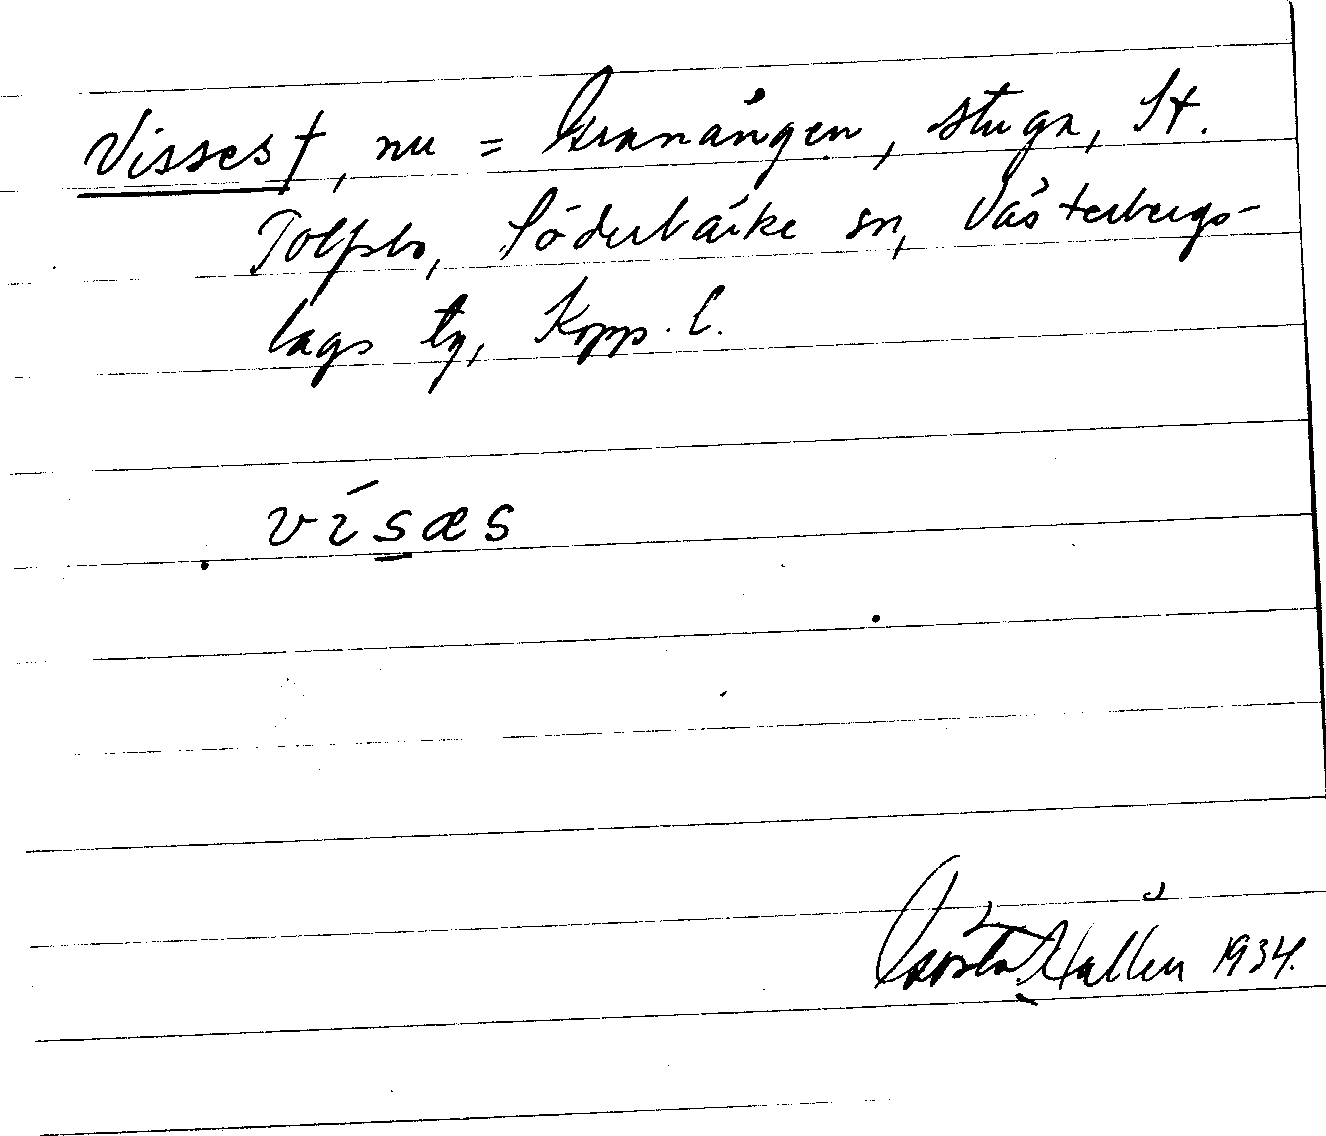 Visses †, nu = Granängen, stuga, St.
Tolfsbo, Söderbärke sn, Västerbergs-
lags tg, Kopp. l.
vísæs
Gösta Hallén 1934.